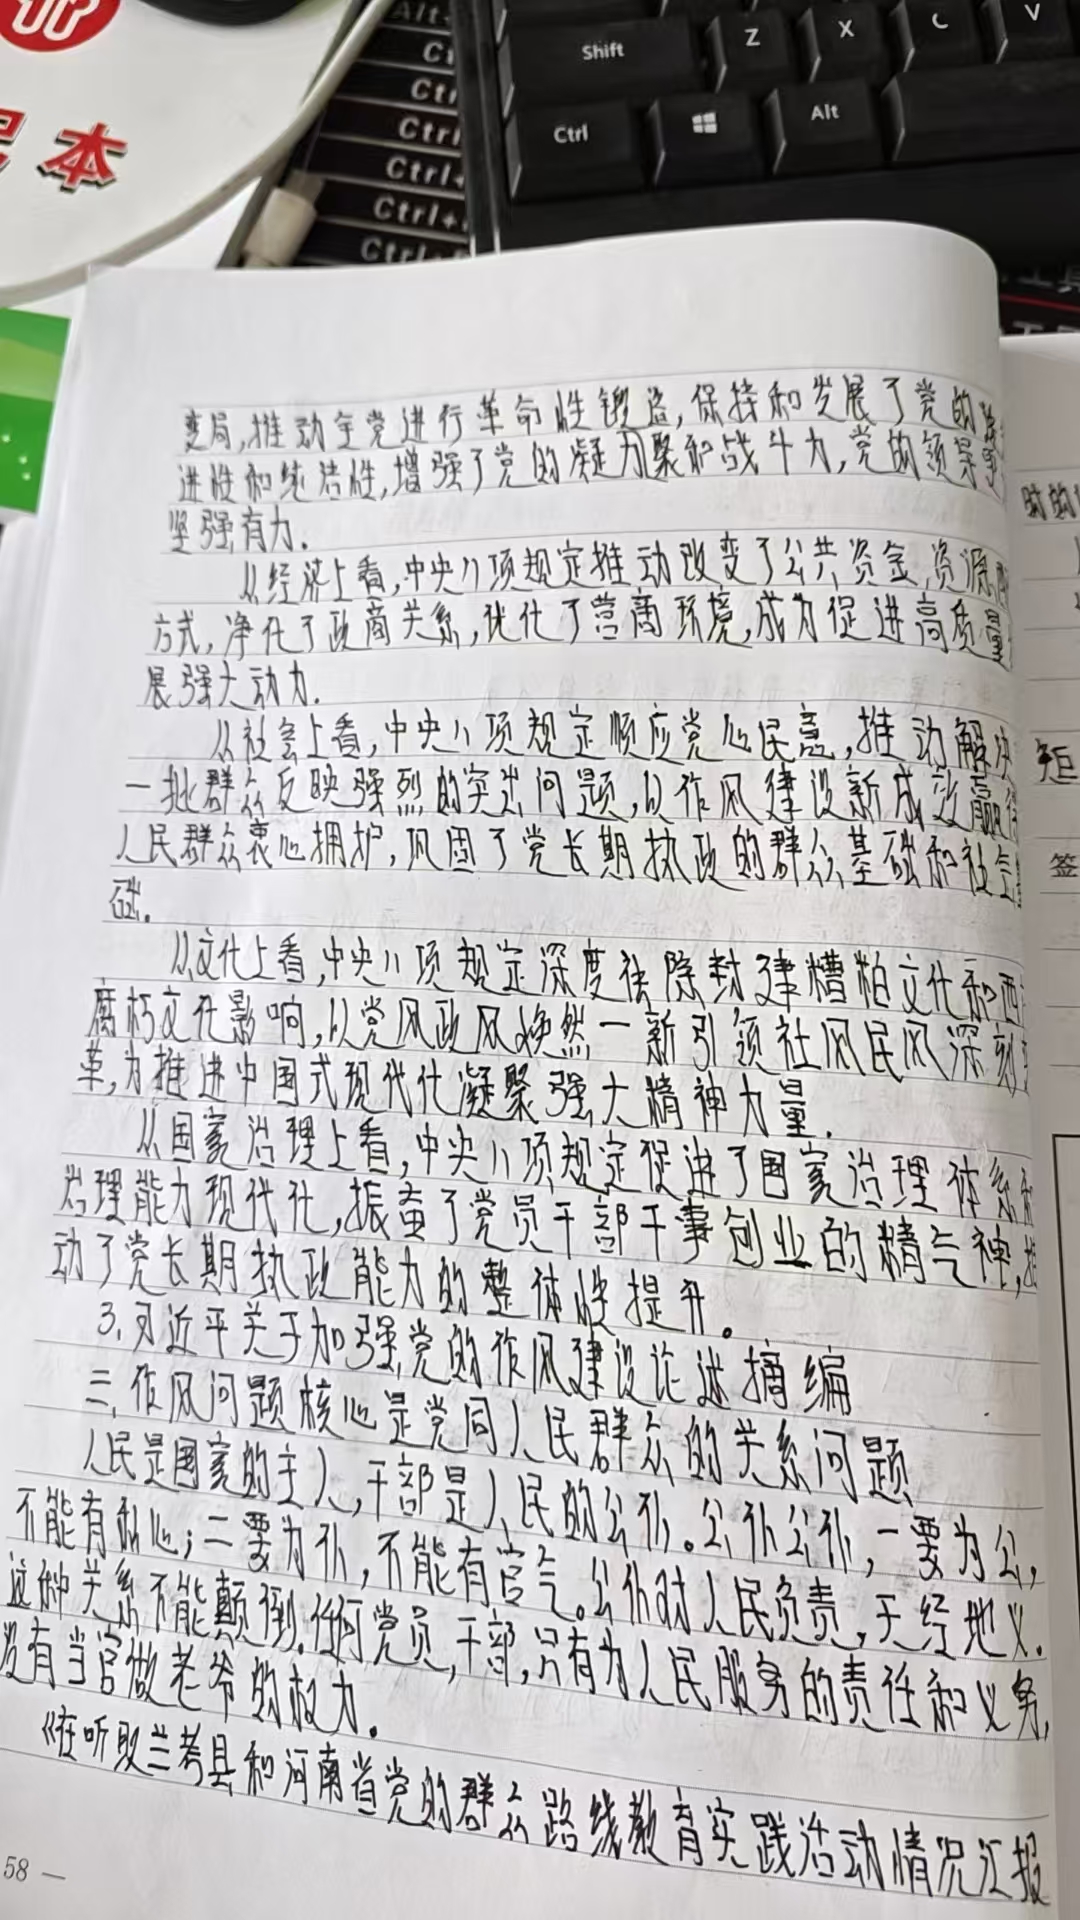 本
Alt+
Ctrl
Ctrl
Ctrl+
Ctrl+
Ctrl+
Shift
Z
X
C
V
Ctrl
Alt
变局,推动全党进行革命性锻造,保持和发展了党的
进性和纯洁性,增强了党的凝力聚和战斗力,党的领导
坚强有力.
从经济上看,中央八项规定推动改变了公共资金,资源
方式,净化了政商关系,优化了营商环境,成为促进高质量
展强大动力.
从社会上看,中央八项规定顺应党心民意,推动解决
一批群众反映强烈的突出问题,以作风建设新成效赢得
人民群众衷心拥护,巩固了党长期执政的群众基础和社会
础.
从文化上看,中央八项规定深度祛除封建糟粕文化和西
腐朽文化影响,以党风政风焕然一新引领社风民风深刻
革,为推进中国式现代化凝聚强大精神力量.
从国家治理上看,中央八项规定促进了国家治理体系
治理能力现代化,振奋了党员干部干事创业的精气神,推
动了党长期执政能力的整体性提升。
3.习近平关于加强党的作风建设论述摘编
三.作风问题核心是党同人民群众的关系问题
人民是国家的主人,干部是人民的公仆。公仆公仆,一要为公,
不能有私心;二要为仆,不能有官气。公仆对人民负责,天经地义.
这种关系不能颠倒.任何党员,干部,只有为人民服务的责任和义务,
没有当官做老爷的权力。
《在听取兰考县和河南省党的群众路线教育实践活动情况汇报
58 —
时的
矩
签